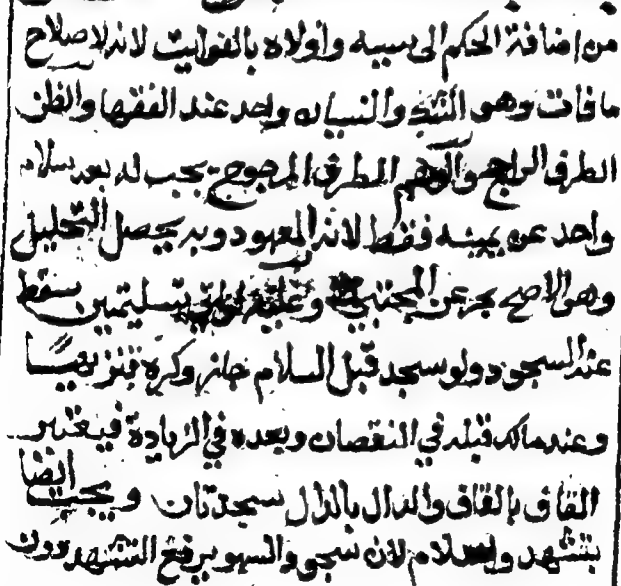 من اضافة الحكم الى سببه واولاه بالفوايت لانه لاصلاح
ما فات وهو والنسيان واحد عند الفقها والظن
الطرف الراجح والوهم الطرف المرجوح يجب له بعد سلام
واحد عن يمينه فقط لانه المعهود وبه يحصل التحليل
وهو الاصح بحر عن المجتبى وعليه لو اتى بتسليمتين سقط
عنه السجود ولو سجد قبل السلام جاز وكره تنزيها
وعند مالك قبله في النقصان وبعده في الزيادة فيعتبر
القاف بالقاف والدال بالدال سجدتان ويجب ايضا
تشهد وسلام لان سجود السهو يرفع التشهد دون